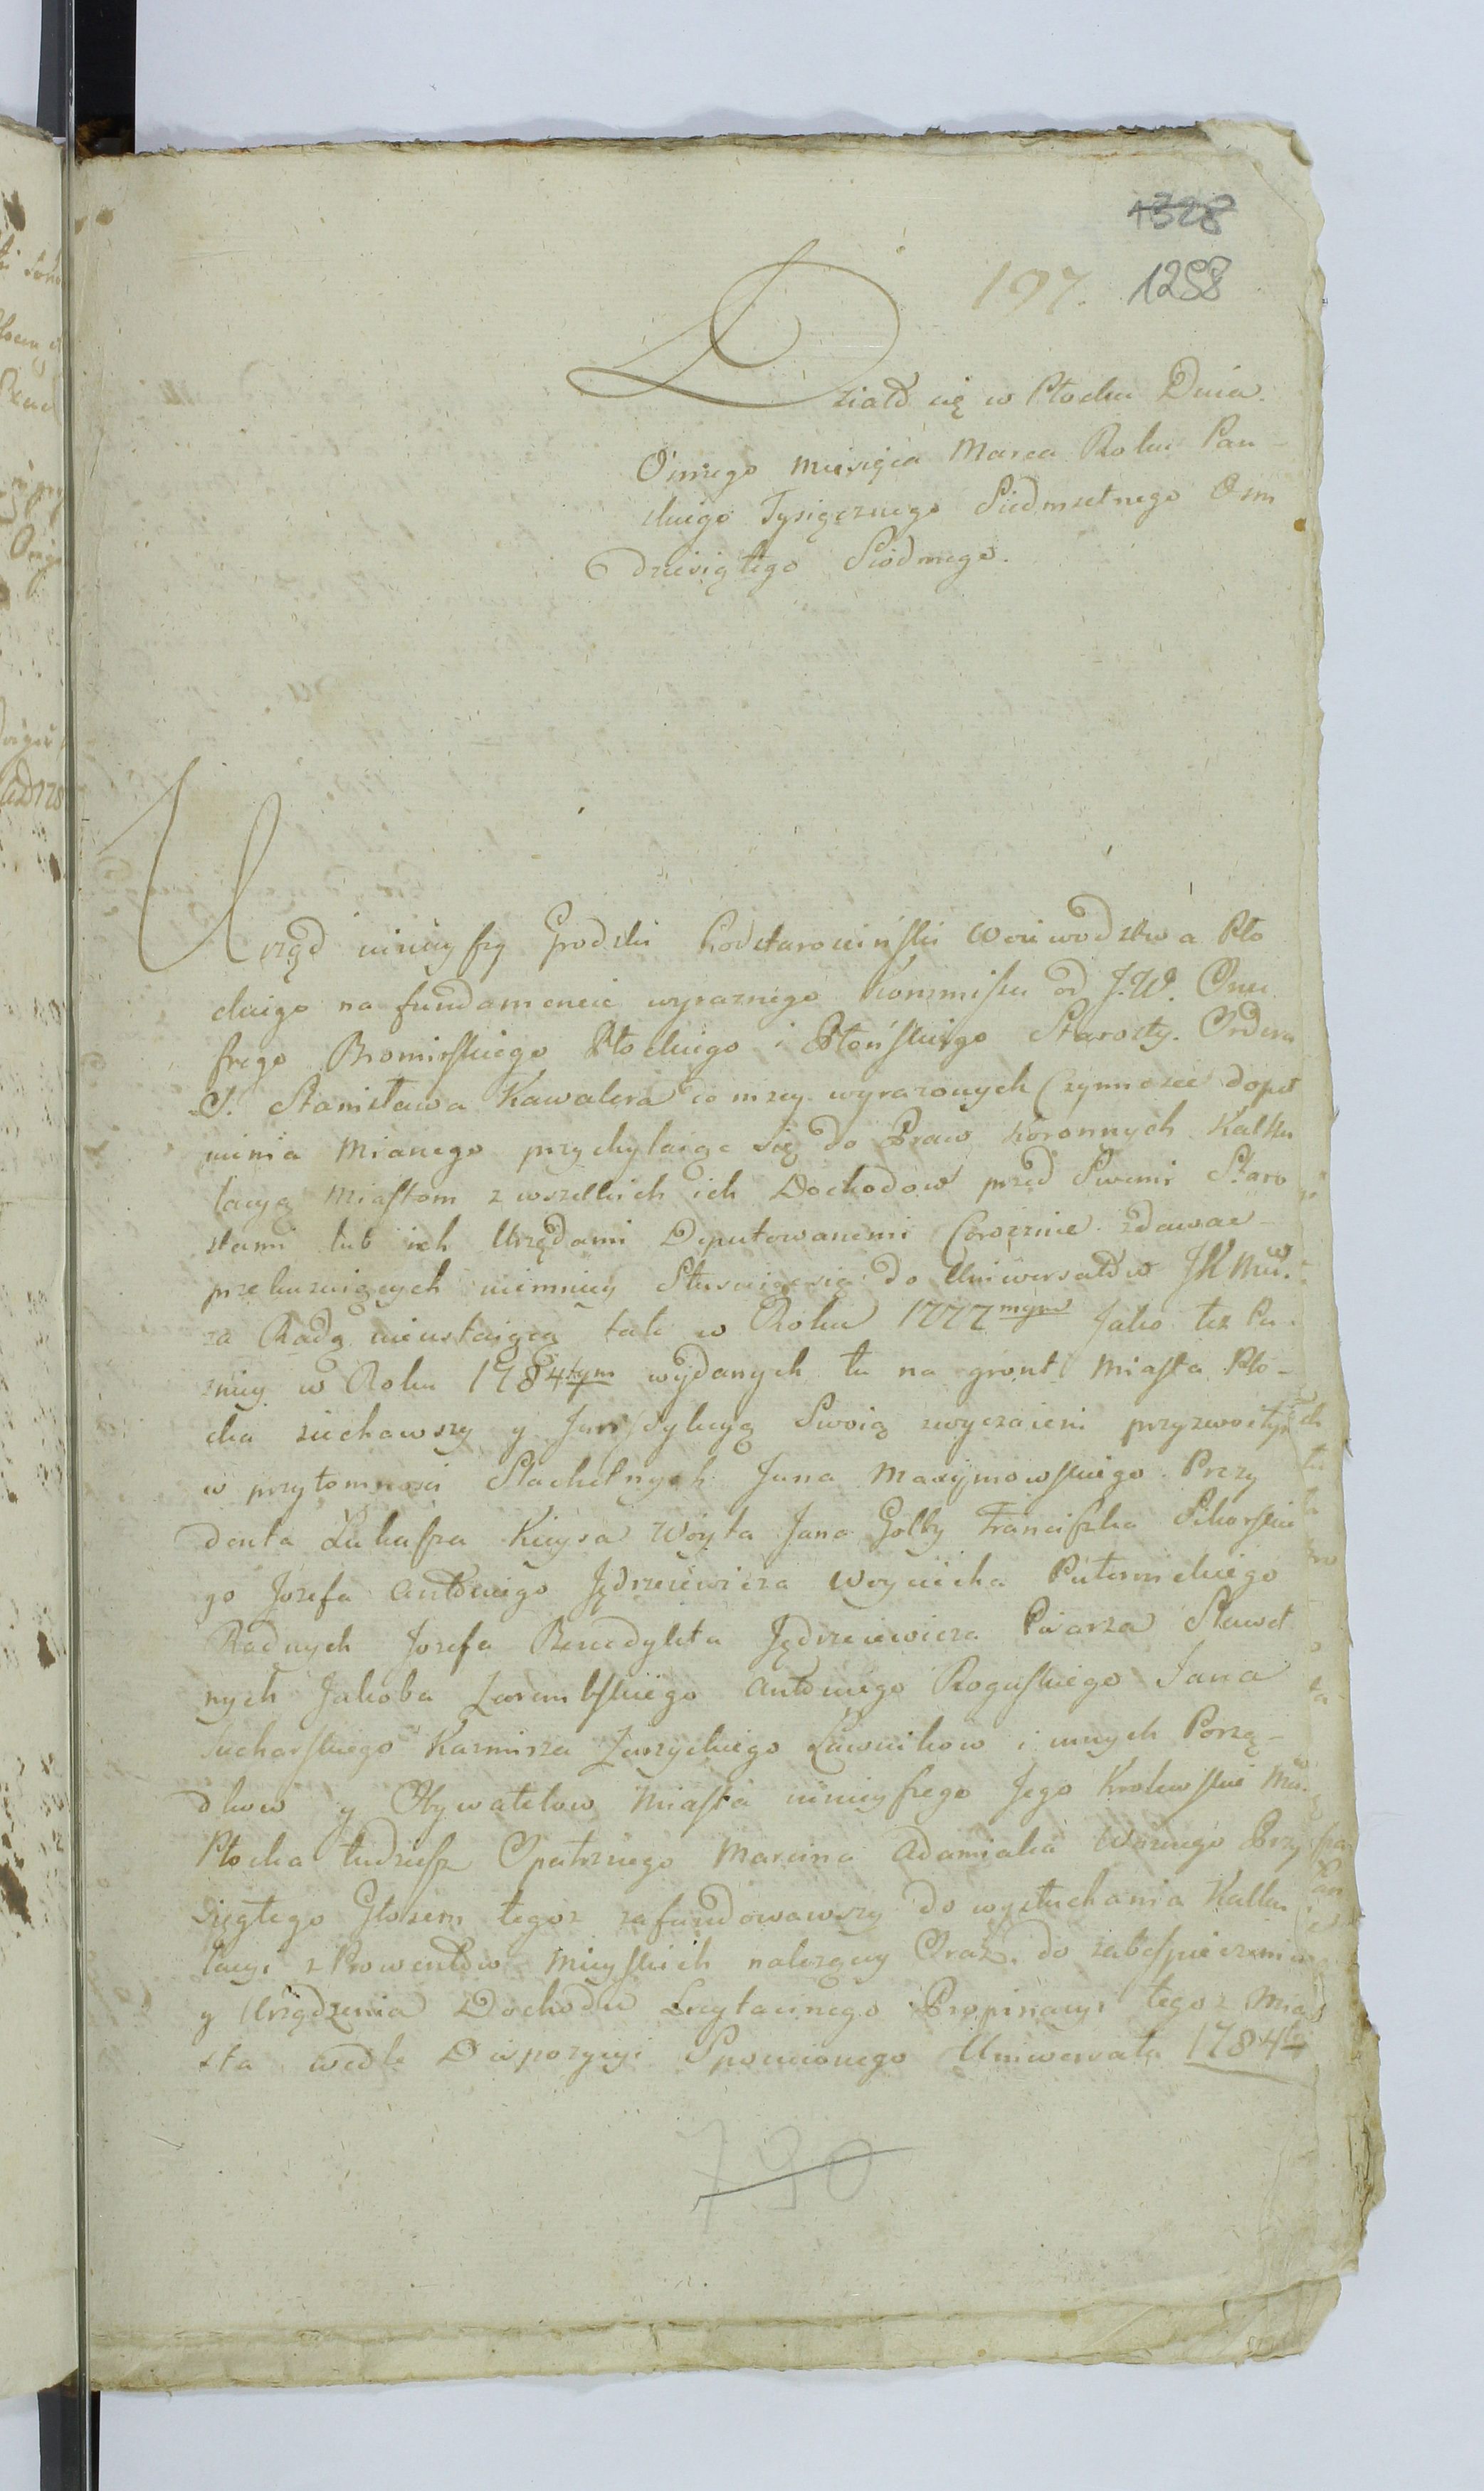 1328
197. 1258
Działo się w Płocku Dnia
Osmego Miesiąca Marca Roku Pan-
skiego Tysiącznego Siedmsetnego Osm
dziesiątego Siodmego.
Urząd ninieyszy Grodzki Podstarościński Woiewodztwa Pło
ckiego na fundamencie wyraznego Kommissu od J.W. Onu
frego Bromirskiego Płockiego i Płońskiego Starosty. Orderu
S. Stanisława Kawalera co niżey wyrażonych Czynności dopeł
nienia Mianego przychylaiąc się do Praw Koronnych Kalku
lacyą Miastom z wszelkich ich Dochodow przed Swemi Staro
stami lub ich Urzędami Deputowanemi Corocznie zdawac
przekazuiących niemniey Stosuiąc się do Uniwersałow JK Mci.
za Radą nieustaiącą tak w Roku 1777mym Jako tez Pu
zniey w Roku 1784tym wydanych tu na gront Miasta Pło-
cka ziechawszy y Jurysdykcyą Swoią zwyczaiem przyzwoitych
w przytomności Slachetnych Jana Maxymowskiego Prezy
denta Łukasza Kieysa Wóyta Jana Golby Franciszka Sikorskie
go Jozefa Antoniego Jędrzeiewicza Woyciecha Puternickiego
Radnych Jozefa Benedykta Jędrzeiewicza Pisarza Sławet
nych Jakoba Zarembskiego Antoniego Roguskiego Jana
Sucharskiego Kazmirza Zarzyckiego Ławnikow i innych Porzą-
dkow y Obywatelow Miasta ninieyszego Jego Krolewskie Mci.
Płocka tudziesz Opatrznego Marcina Adamiaka Woznego Przy
sięgłego Głosem tegoz zafundowawszy do wysłuchania Kalku
lacyi z Prowentow Mieyskich nalezącey Oraz do zabespieczenia
y Urządzenia Dochodu Licytacinego Propinacyi tegoz Mia
sta wedle Dispozycyi Spomnionego Uniwersału 1784to
790